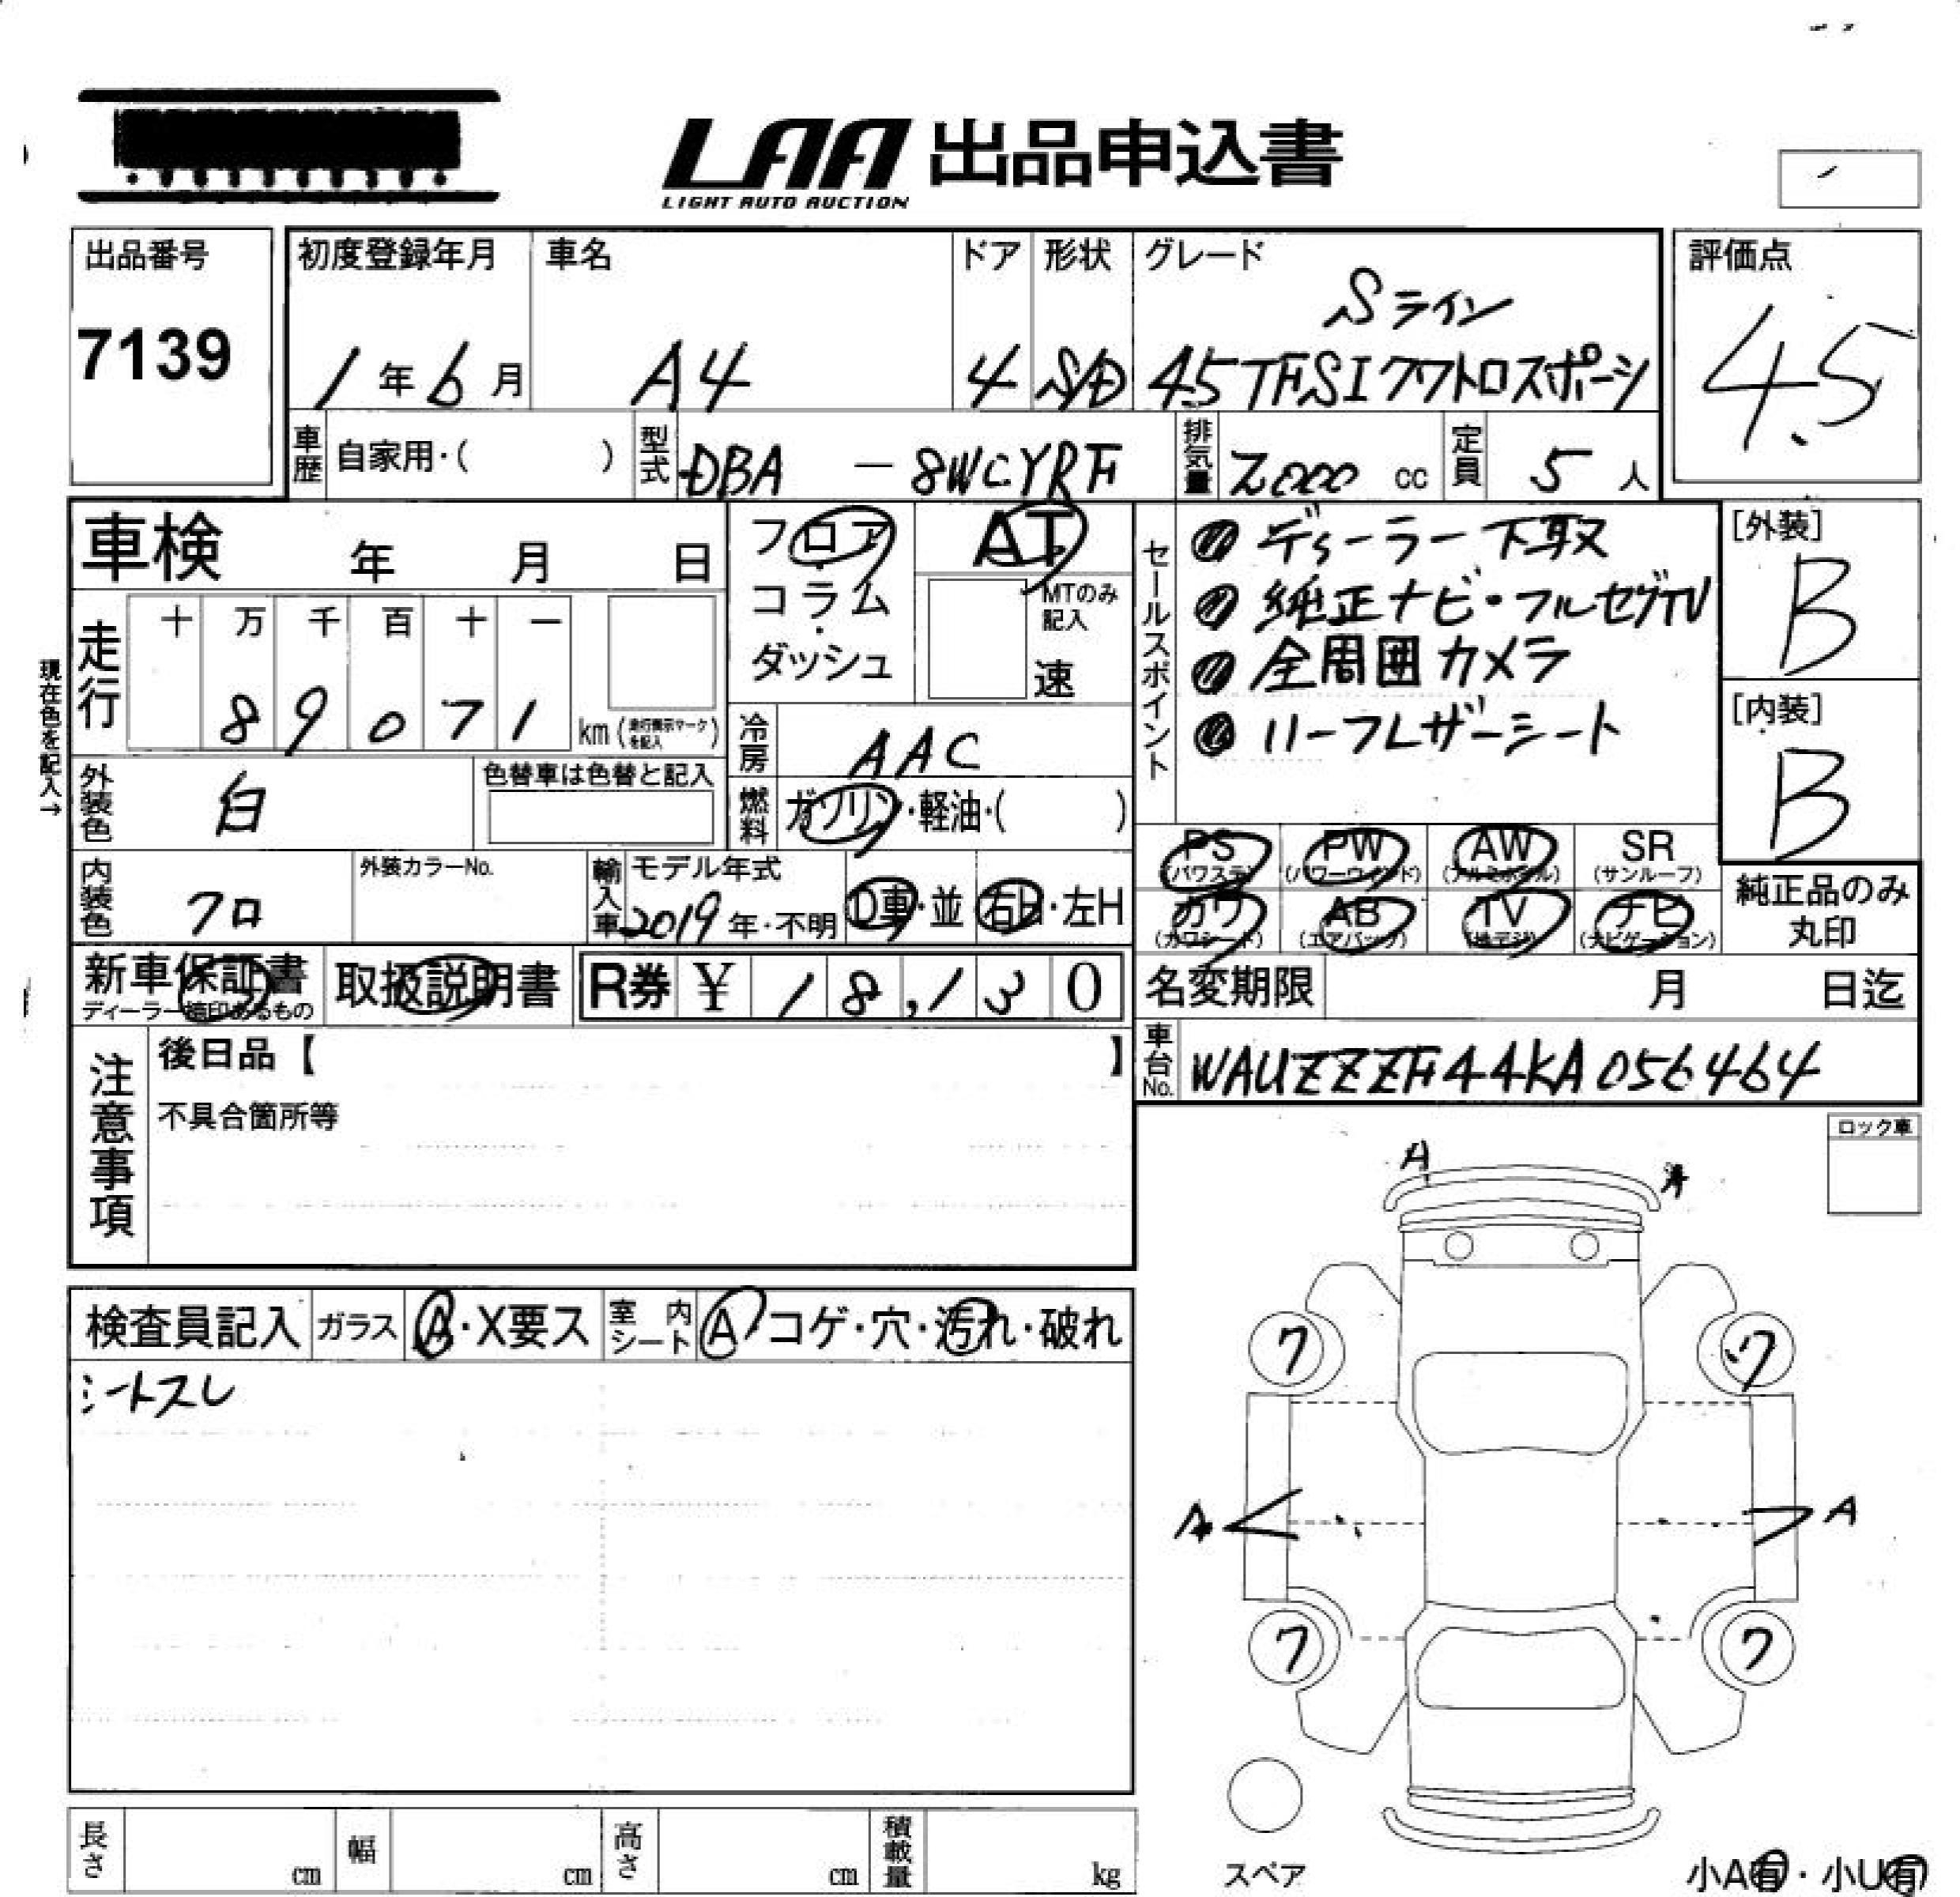 LAA 出品申込書
LIGHT AUTO AUCTION
出品番号
7139
初度登録年月
1年6月
車名
A4
ドア
4
形状
S/D
グレード
Sライン
45TFSIクワトロスポーツ
評価点
4.5
車歴
自家用・( )
型式
DBA － 8WCYRF
排気量
2000 cc
定員
5 人
車検 年 月 日
フロア
・
コラム
・
ダッシュ
AT
MTのみ記入
速
セールスポイント
ディーラー下取
純正ナビ・フルセグTV
全周囲カメラ
ハーフレザーシート
[外装]
B
[内装]
B
現在色を記入→
走行
十 万 千 百 十 一
8 9 0 7 1 km (走行表示マークを記入)
冷房
AAC
外装色
白
色替車は色替と記入
燃料
ガソリン・軽油・( )
内装色
クロ
外装カラーNo.
輸入車
モデル年式
2019年・不明
D車・並
右H・左H
PS
(パワステ)
PW
(パワーウィンド)
AW
(アルミホイル)
SR
(サンルーフ)
カワ
(カワシート)
AB
(エアバック)
TV
(地デジ)
ナビ
(ナビゲーション)
純正品のみ
丸印
新車保証書
ディーラー捺印あるもの
取扱説明書
R券 ¥ 18,130
名変期限 月 日迄
車台No.
WAUZZZF44KA056464
注意事項
後日品【 】
不具合箇所等
ロック車
A
A
検査員記入
ガラス
A・X要ス
室内シート
A コゲ・穴・汚れ・破れ
シートスレ
ワ
ワ
A
A
ワ
ワ
長さ cm
幅 cm
高さ cm
積載量 kg
スペア
小A有・小U有